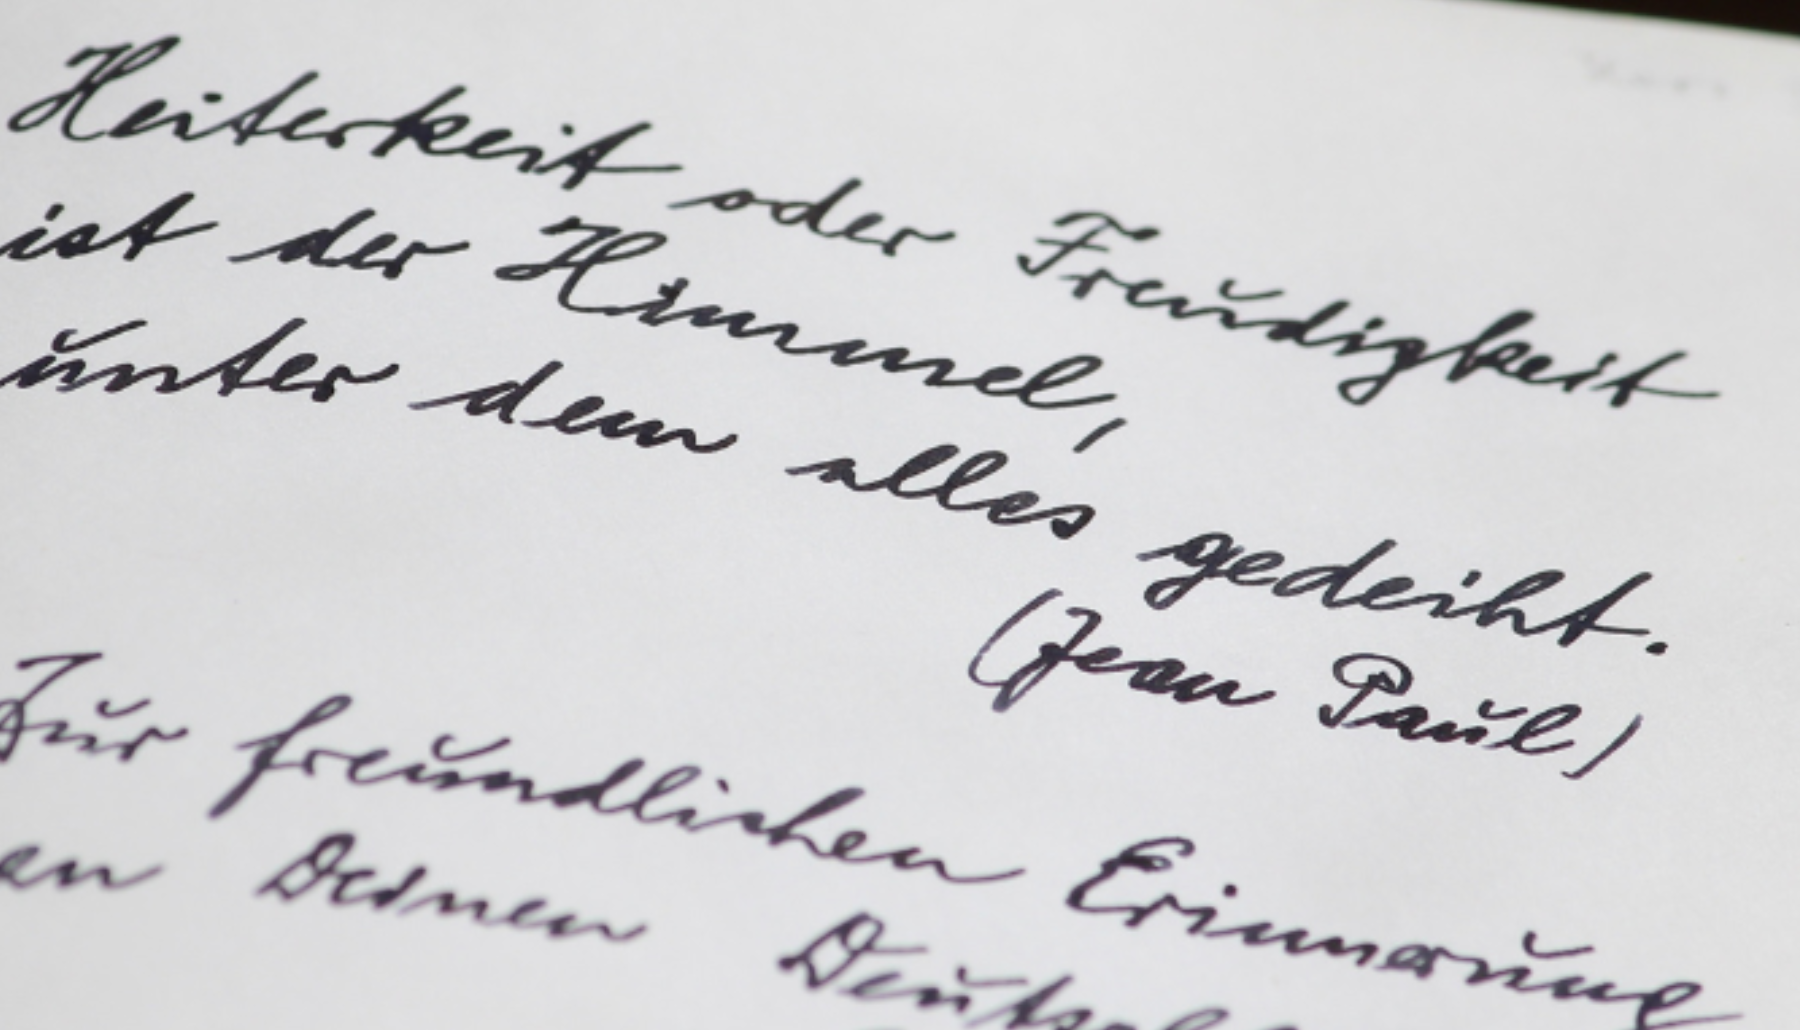 Heiterkeit oder Freudigkeit
ist der Himmel,
unter dem alles gedeiht.
(Jean Paul)
Zur freundlichen Erinnerung
an Deinen